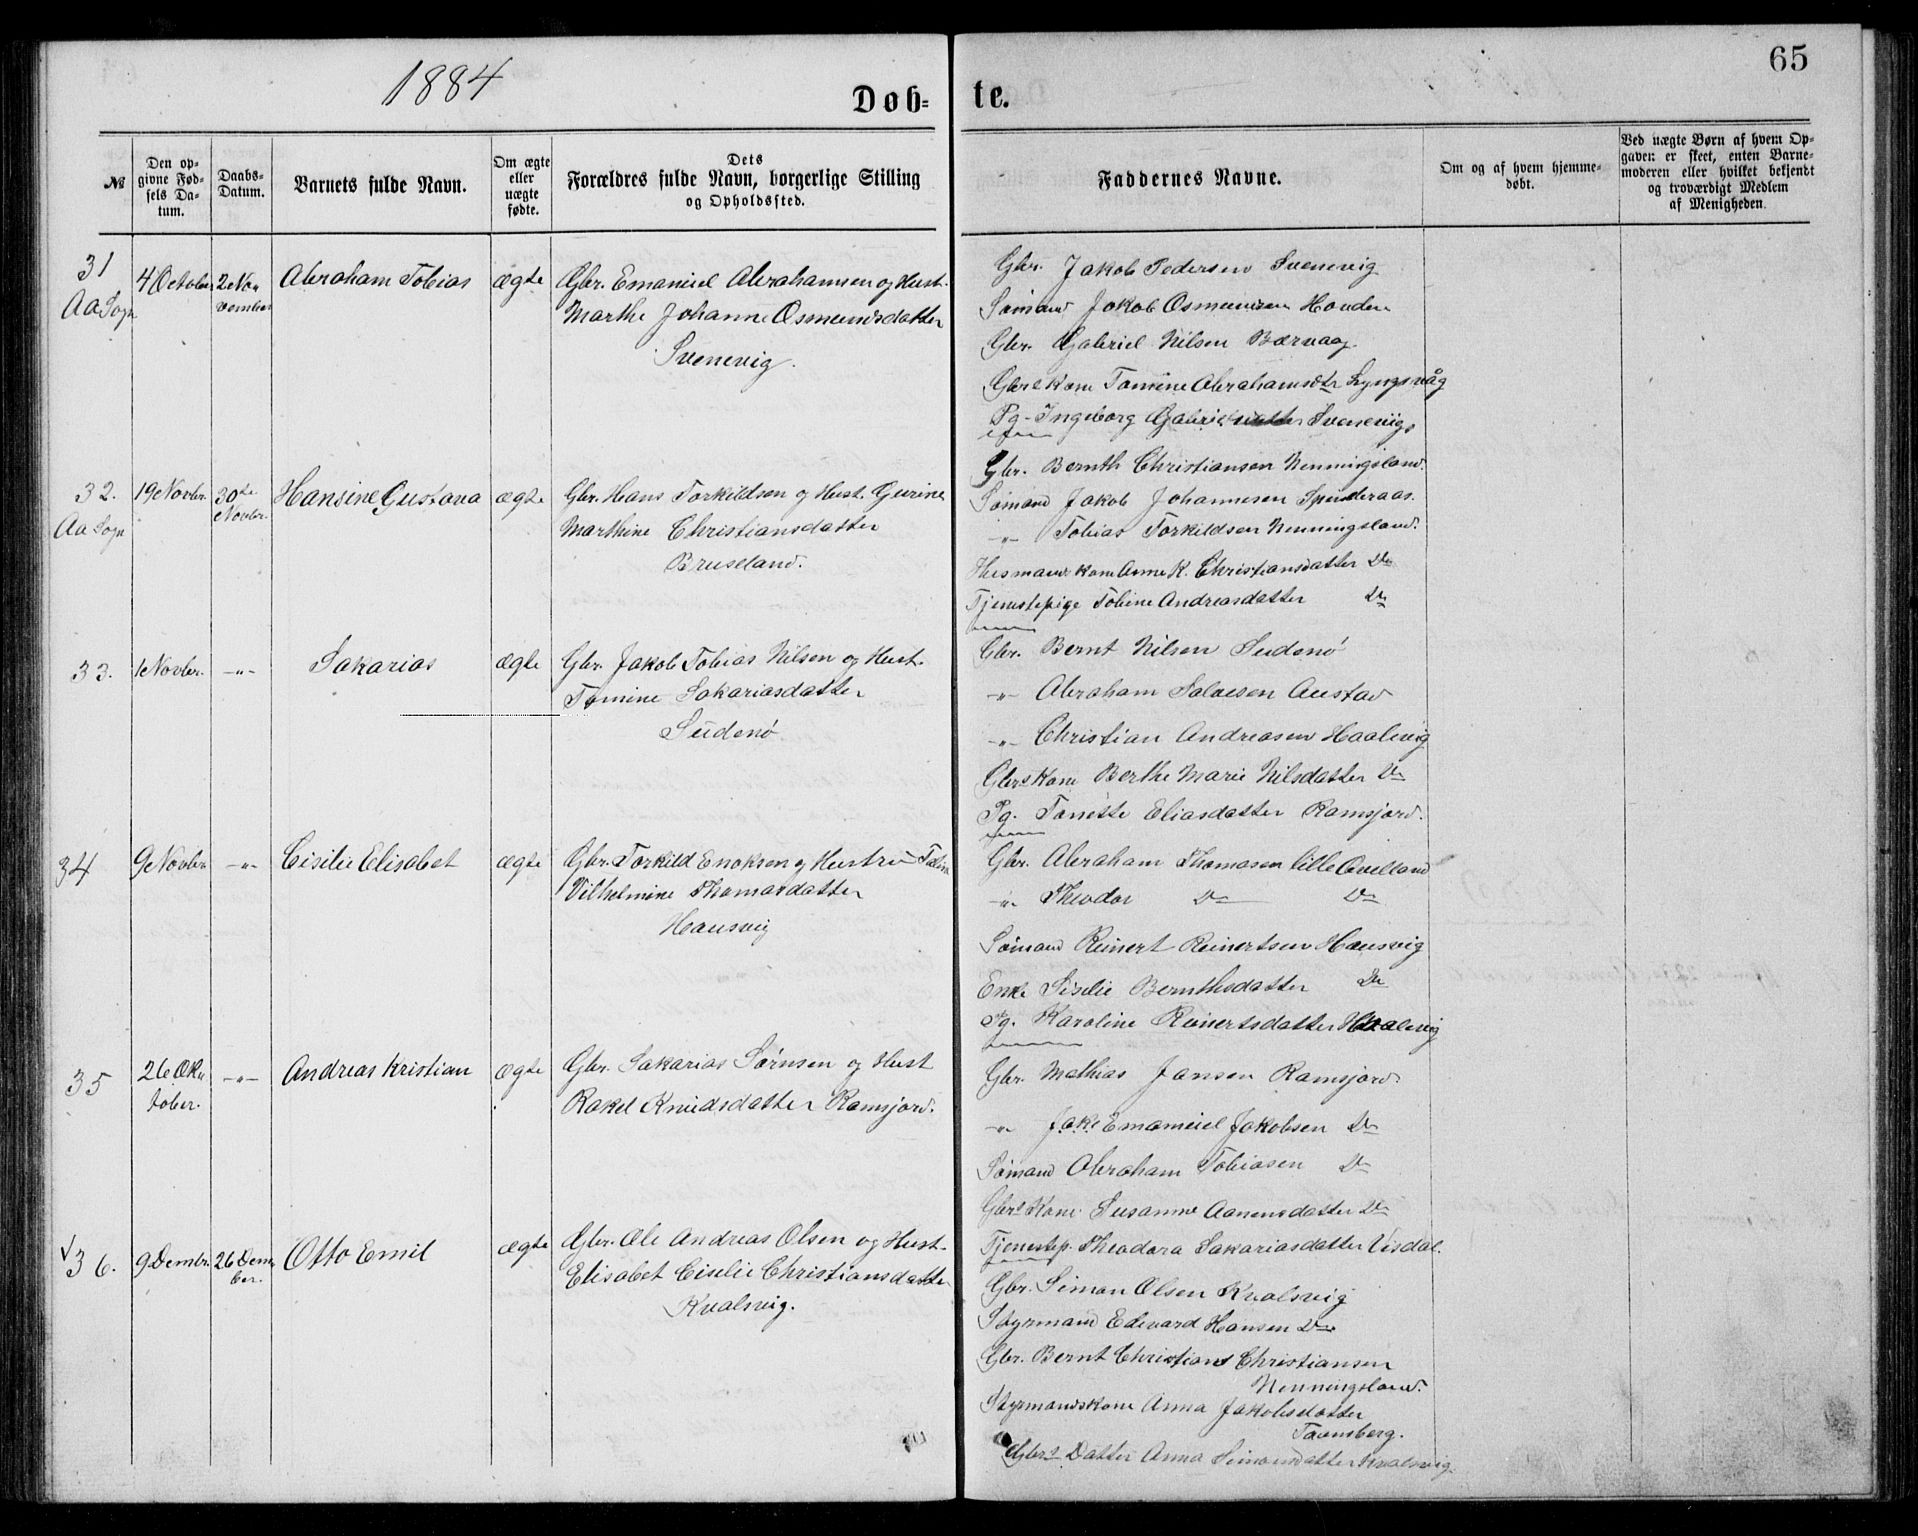 65
1884
Døb=
te.
№
Den op-
givne Fød-
sels Da-
tum.
Daabs-
Datum.
Barnets fulde Navn.
Om ægte
eller
uægte
fødte.
Dets
Forældres fulde Navn, borgerlige Stilling
og Opholdssted.
Faddernes Navne.
Om og af hvem hjemme-
døbt.
Ved uægte Børn af hvem Op-
gaven er skeet, enten Barne-
moderen eller hvilket bekjendt
og troværdigt Medlem
af Menigheden.
31
Aa Sogn
4 October
2 No-
vember
Abraham Tobias
ægte
Gbr. Emanuel Abrahamsen og Hust.
Marthe Johanne Osmundsdatter
Svenevig.
Gbr. Jakob Pedersen Svenevig
Sømand Jakob Osmundsen Houden
Gbr. Gabriel Nilsen Bærvaag.
Gbrs kone Tomine Abrahamsdtr Lyngsvåg
Pg. Ingeborg Svenevigs
32.
Aa Sogn
19 Novbr.
30te
Novbr.
Hansine Gustava
ægte
Gbr. Hans Torkildsen og Hust. Gurine
Marthine Christiansdatter
Bruseland.
Gbr. Bernth Christiansen Nenningsland.
Sømand Jakob Johannesen Spinderaas.
-"- Tobias Torkildsen Nenningsland.
Husmands kone Anne K. Christiansdatter Do
Tjenestepige Tobine Andreasdatter Do
33.
1 Novbr.
-"-
Sakarias
ægte
Gbr. Jakob Tobias Nilsen og Hust.
Tomine Sakariasdatter
Sudenø
Gbr. Bernt Nilsen Sudenø
-"- Abraham Salvesen Austad
-"- Christian Andreasen Haalevig
Gbrs Kone Berthe Marie Nilsdatter Do
Pg. Tonette Eliasdatter Ramsjord.
34
9 Novbr
-"-
Cisilie Elisabet
ægte
Gbr. Torkild Enoksen og Hustru
Vilhelmine Thomasdatter
Hausvig
Gbr. Abraham Thomasen lille Qvelland
-"- Theodor Do Do
Sømand Reinert Reinertsen Hausvig
Enke Siselie Bernthsdatter Do
Pg. Karoline Reinertsdatter Haalevig
35
26 Ok-
tober.
-"-
Andreas Kristian
ægte
Gbr. Sakarias Sørnsen og Hust
Rakel Knudsdatter Ramsjord.
Gbr. Mathias Jansen Ramsjord
-"- Emanuel Jakobsen Do
Sømand Abraham Tobiasen Do
Gbrs Kone Susanne Aanensdatter Do
Tjenestep. Theodora Sakariasdatter Visdal.
36.
9 Dembr.
26 Dem-
ber.
Otto Emil
ægte
Gbr. Ole Andreas Olsen og Hust.
Elisabet Ciselie Christiansdatter
Kvalsvig.
Gbr. Simon Olsen Kvalsvig
Styrmand Edevard Hansen Do
Gbr. Bernt Christians Christiansen
Nenningsland.
Styrmandskone Anna Jakobsdatter
Taumsberg.
Gbrs Datter Anna Simonsdatter Kvalsvig.